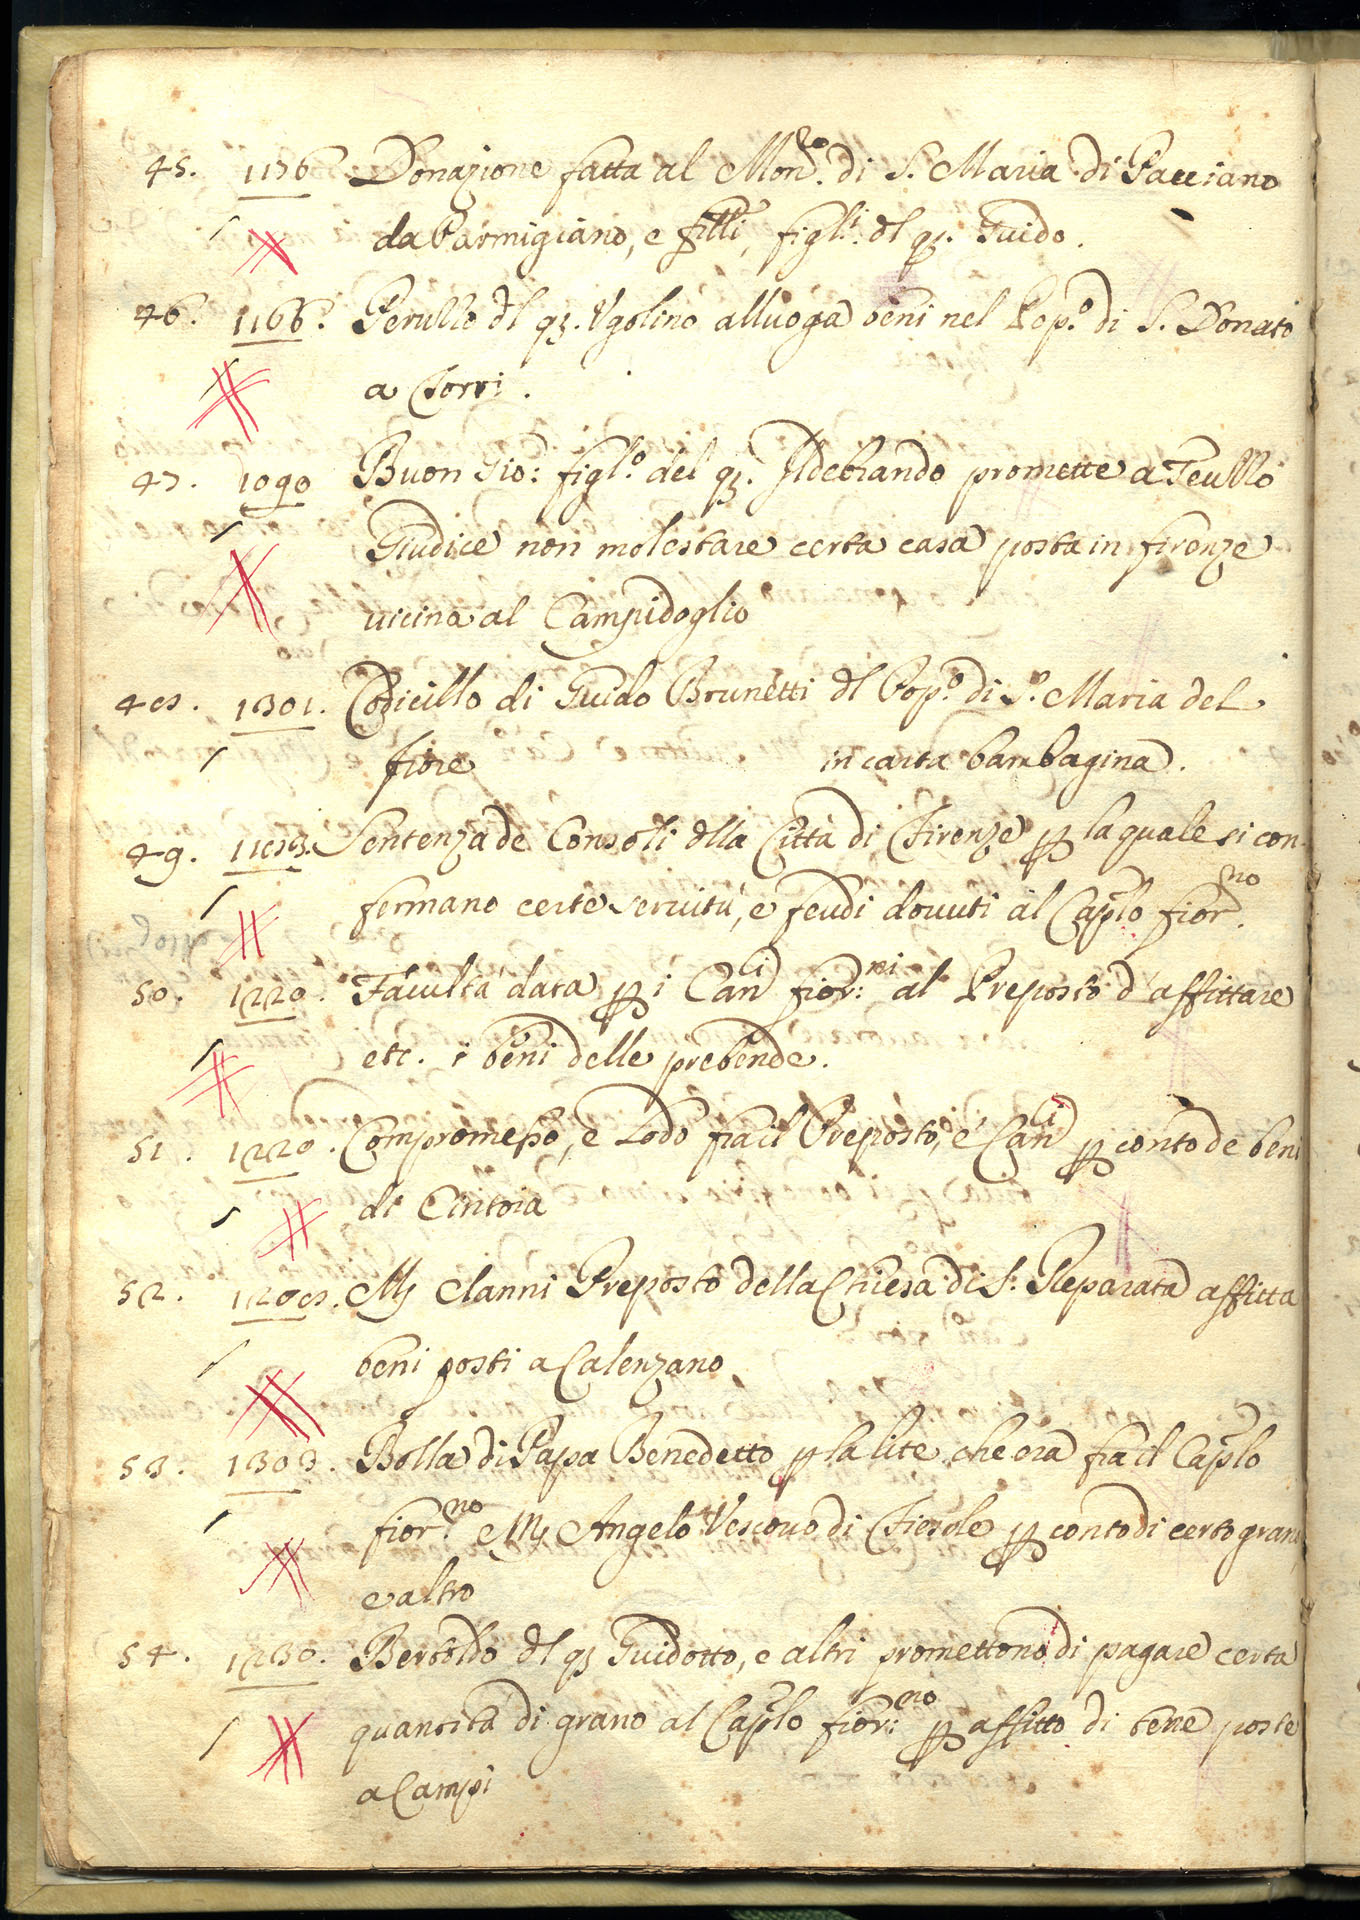 45. 1176 Donazione fatta al Mon.ro di S. Maria di Pacciano
da Parmigiano, e f͠lli, figl.i dl qz. Guido.
46. 1166. Perullo dl qz. Ugolino alluoga beni nel Pop.o di S. Donato
a Torri.
47. 1090 Buon Gio: figl.o del qz. Ildebrando promette a Teullo
Giudice non molestare certa casa posta in firenze
vicina al Campidoglio
48. 1301. Codicillo di Guido Brunetti dl Pop.o di S. Maria del
fiore in carta bambagina.
49. 1183. Sentenza de Consoli dlla Città di Firenze p la quale si con-
fermano certe servitù, e feudi dovuti al Caplo fior.no
50. 1220. Facultà data p i Can.i fior:ni al Preposto d'affittare
etc. i beni delle prebende.
51. 1220. Compromesso, e Lodo fra il Preposto, e Can.i p conto de beni
di Cintoia
52. 1208. M Clanni Preposto della Chiesa di S. Reparata affitta
beni posti a Calenzano
53. 1303. Bolla di Papa Benedetto p la lite che era fra il Caplo
fior.no e M Angelo Vescovo di Fiesole p conto di certo grano
e altro
54. 1230. Bertoldo dl qz Guidotto, e altri promettono di pagare certa
quantità di grano al Caplo fior:no p affitto di terre poste
a Campi